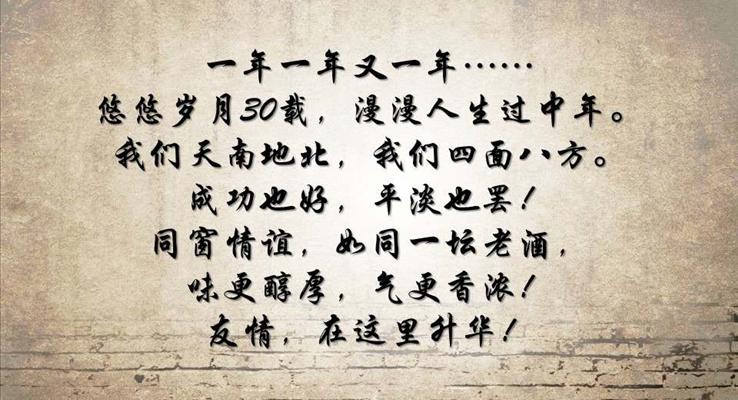 一年一年又一年……
悠悠岁月30载，漫漫人生过中年。
我们天南地北，我们四面八方。
成功也好，平淡也罢！
同窗情谊，如同一坛老酒，
味更醇厚，气更香浓！
友情，在这里升华！